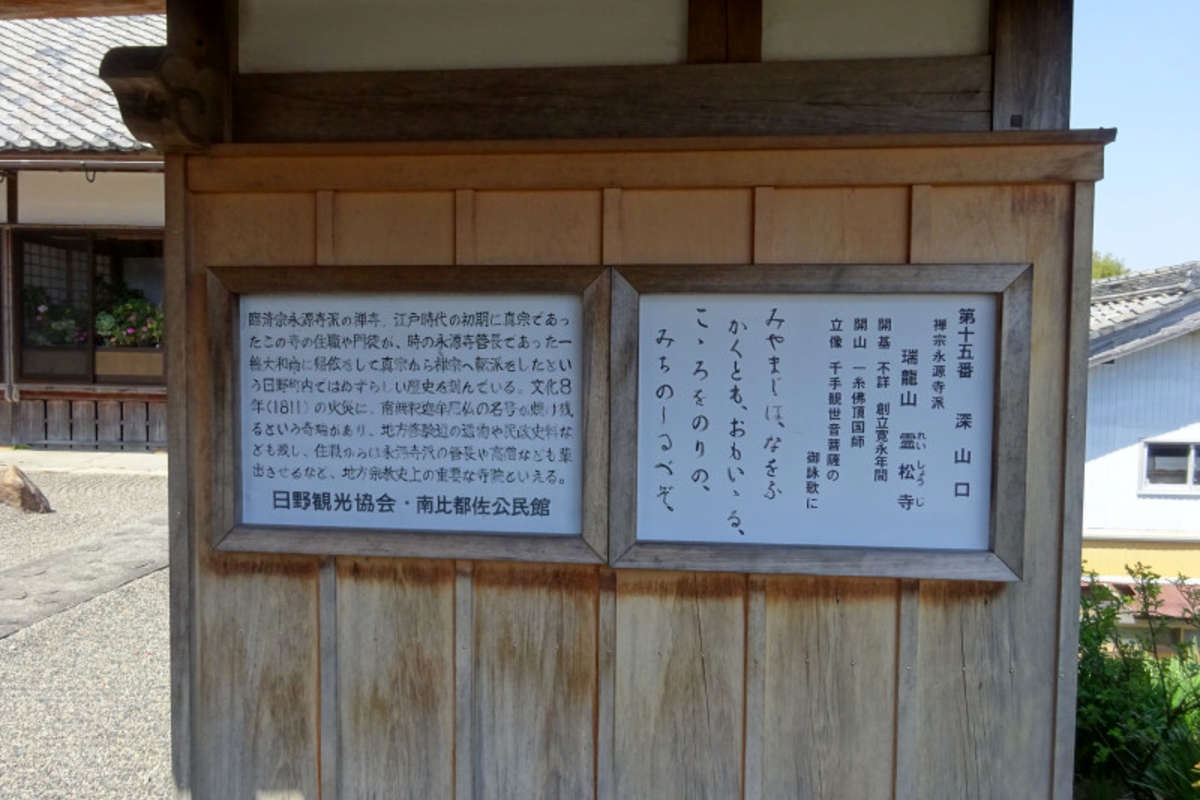 臨済宗永源寺派の禅寺。江戸時代の初期に真宗であっ
たこの寺の住職や門徒が、時の永源寺管長であった一
絲大和尚に帰依をして真宗から禅宗へ転派をしたとい
う日野町内ではめずらしい歴史を刻んでいる。文化8
年(1811)の火災に、南無釈迦牟尼仏の名号が焼け残
るという奇瑞があり、地方修験道の遺物や民政史料な
ども残し、住職からは永源寺派の管長や高僧なども輩
出させるなど、地方宗教史上の重要な寺院といえる。
日野観光協会・南比都佐公民館
第十五番 深山口
禅宗永源寺派
瑞龍山 霊松寺
れいしょうじ
開基 不詳 創立寛永年間
開山 一糸佛頂国師
立像 千手観世音菩薩の
御詠歌に
みやまじは、なをふ
かくとも、おもいゝる、
こゝろをのりの、
みちのしるべぞ、